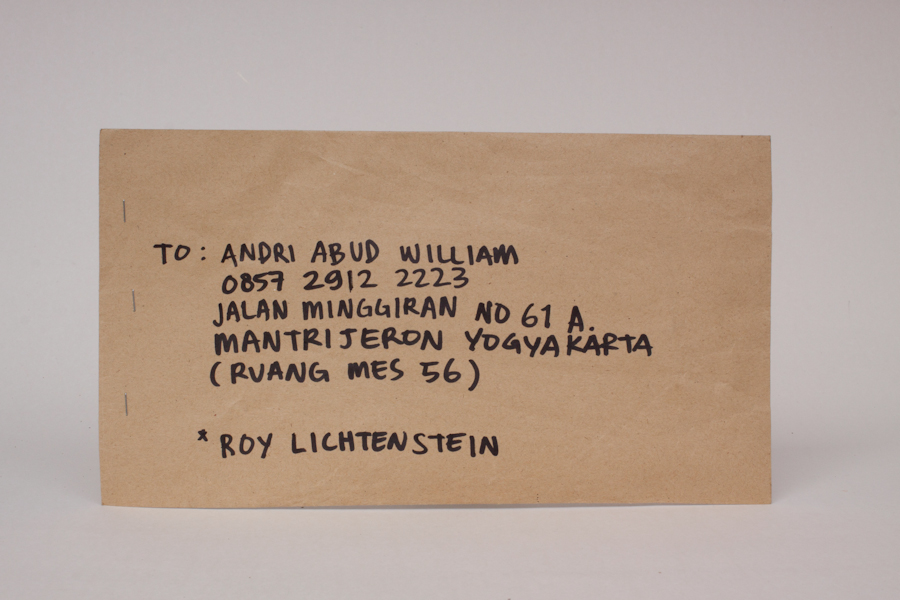 TO: ANDRI ABUD WILLIAM
0857 2912 2223
JALAN MINGGIRAN NO 61 A.
MANTRIJERON YOGYAKARTA
(RUANG MES 56)
* ROY LICHTENSTEIN